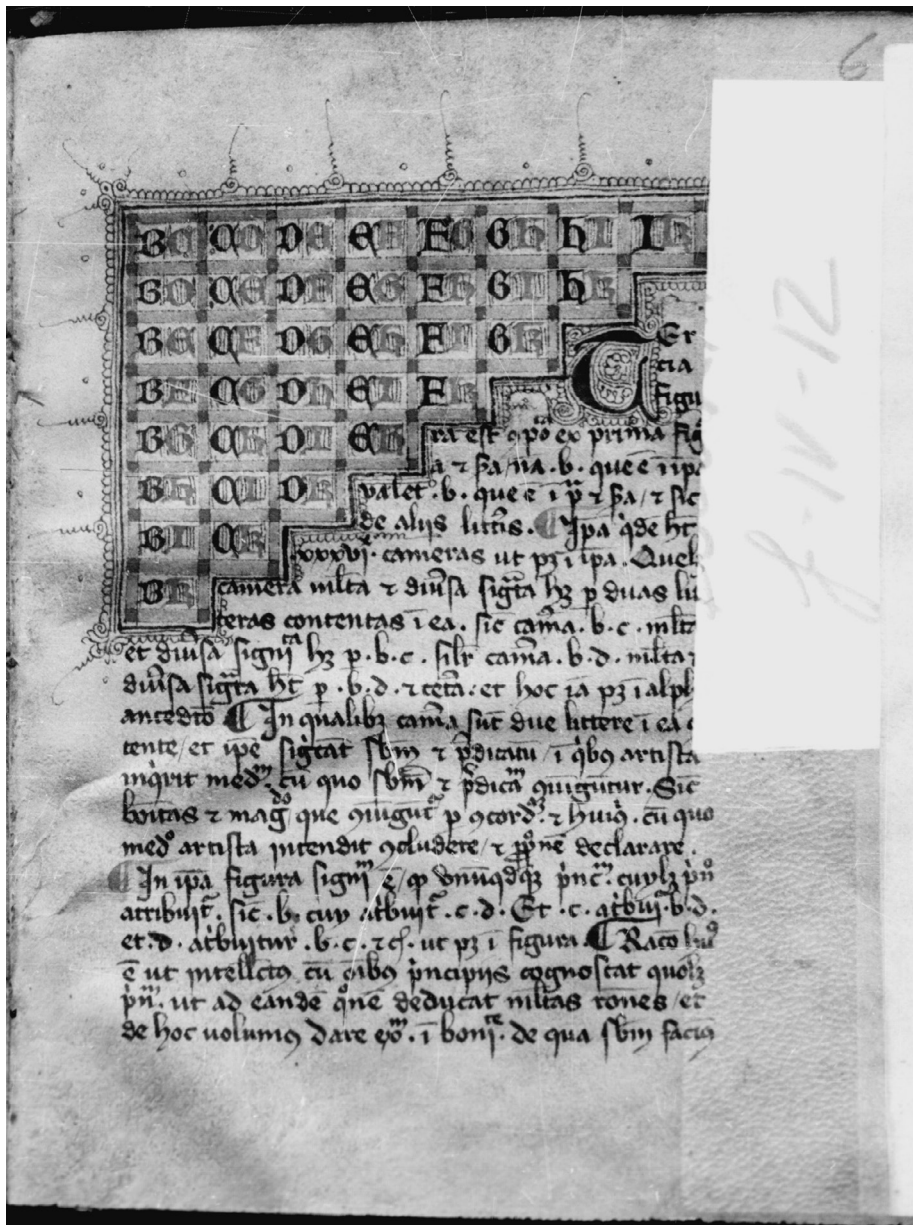 6
BC CD DE EF FG GH HI IK
BD CE DF EG FH GI HK
BE CF DG EH FI GK
BF CG DH EI FK
BG CH DI EK
BH CI DK
BI CK
BK
f-IV-12
Ter
cia
figu
ra est ꝯpōͣ ex prima fig̃
⁊ . b. que ē i ip
ualet .b. que ē ī pͣ ⁊ sͣ/ ⁊ sic
de aliis litt̃is. ¶ Ip̃a q̇dē ht̄
xxxvj. cameras ut pꝫ ī ip̃a. Quel
camera ml̃ta ⁊ diu̾sa sig̃ta hꝫ p duas lit
teras contentas ī ea. sic̄ cam̃a. b.c. ml̃ta
et diu̾sa signiᵗᵃ hꝫ p.b.c. sil̃r cam̃a. b.d. ml̃ta ⁊
diu̾sa sig̃ta ht̄ p.b.d. ⁊ cet̃a. et hoc iā pꝫ ī alph
antedc̄o ¶ In qualibꝫ cam̃a sūt due littere ī ea c
tente/ et ip̄e sig̃cāt sb̃m ⁊ p̃dicatū/ ī q̇bꝰ artista
inq̇rit mediᵐ. cū quo sb̃m ⁊ p̃dicᵐ ꝯiūgūtur. Sic̄
boītas ⁊ mag̃ᵈᵒ que ꝯiūgūt̃ p ꝯcordᵃꝫ. ⁊ huiꝰ. cū quo
medᵒ artista intendit ꝯcludere/ ⁊ ꝓpōnē declarare.
¶ In ip̃a figura signiᵐ ē/ ꝙ vnūq̇dqꝫ pͥncᵐ. cuylꝫ pͥnᵒ
attribuit̃. sic̄ .b. cuy at̃buit̃ .c.d. Et .c. at̃buit̃ .b.d.
et .d. at̃buitur .b.c. ⁊ c̄. ut pꝫ ī figura. ¶ Raco huiꝰ
ē ut intellectꝰ cū oībꝰ pͥncipiis cognoscat quodlꝫ
pͥnᵐ. ut ad eandē qᵒnē deducat ml̃tas rōnes/ et
de hoc uolumꝰ dare exᵐ. ī boniᵗᵉ. de qua sb̃m faciūꝰ